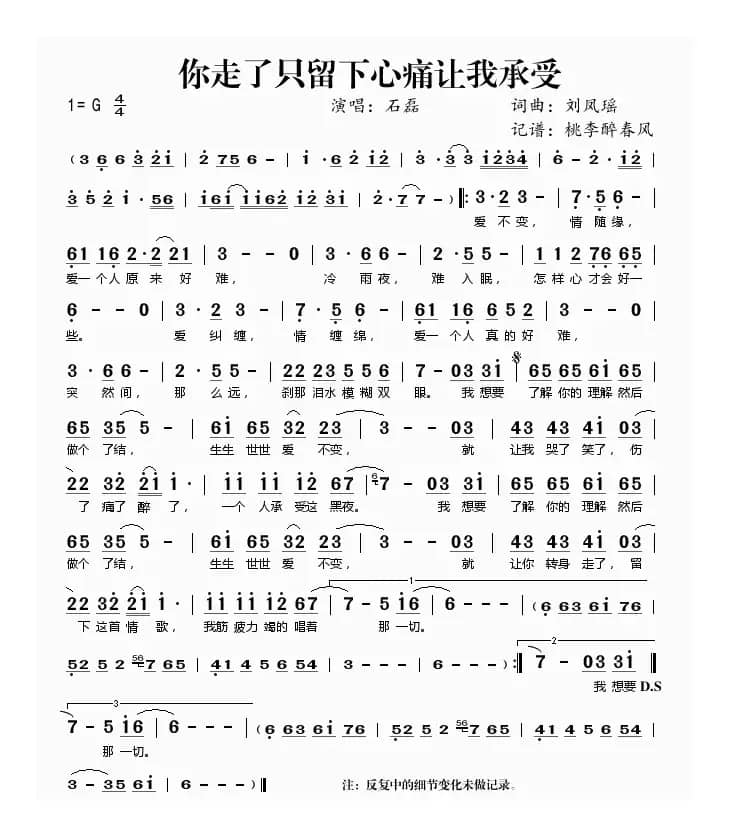 你走了只留下心痛让我承受
1= G 4/4 演唱：石磊 词曲：刘凤瑶
记谱：桃李醉春风
( 3 6 6 3 2 1 | 2 7 5 6 - | 1 · 6 2 1 2 | 3 · 3 3 1 2 3 4 | 6 - 2 · 1 2 |
3 5 2 1 · 5 6 | 1 6 1 1 1 6 2 1 2 3 1 | 2 · 7 7 - ) ‖: 3 · 2 3 - | 7 · 5 6 - |
爱 不 变， 情 随 缘，
6 1 1 6 2 · 2 2 1 | 3 - - 0 | 3 · 6 6 - | 2 · 5 5 - | 1 1 2 7 6 6 5 |
爱一 个人 原 来 好 难， 冷 雨 夜， 难 入 眠， 怎 样 心 才会 好一
6 - - 0 | 3 · 2 3 - | 7 · 5 6 - | 6 1 1 6 6 5 2 | 3 - - 0 |
些。 爱 纠 缠， 情 缠 绵， 爱一 个人 真 的 好 难，
3 · 6 6 - | 2 · 5 5 - | 2 2 2 3 5 5 6 | 7 - 0 3 3 1 | 6 5 6 5 6 1 6 5 |
突 然 间， 那 么 远， 刹那 泪水 模 糊 双 眼。 我 想要 了解 你的 理解 然后
6 5 3 5 5 - | 6 1 6 5 3 2 2 3 | 3 - - 0 3 | 4 3 4 3 4 1 0 3 |
做个 了结， 生生 世世 爱 不变， 就 让我 哭了 笑了， 伤
2 2 3 2 2 1 1 · | 1 1 1 1 1 2 6 7 | 6 7 - 0 3 3 1 | 6 5 6 5 6 1 6 5 |
了 痛了 醉 了， 一个 人承 受这 黑夜。 我 想要 了解 你的 理解 然后
6 5 3 5 5 - | 6 1 6 5 3 2 2 3 | 3 - - 0 3 | 4 3 4 3 4 1 0 3 |
做个 了结， 生生 世世 爱 不变， 就 让你 转身 走了， 留
1
2 2 3 2 2 1 1 · | 1 1 1 1 1 2 6 7 | 7 - 5 1 6 | 6 - - - | ( 6 6 3 6 1 7 6 |
下 这首 情 歌， 我筋 疲力 竭的 唱着 那 一切。
2
5 2 5 2 5 6 7 6 5 | 4 1 4 5 6 5 4 | 3 - - - | 6 - - - ) :‖ 7 - 0 3 3 1 ‖
我 想要 D.S
3
7 - 5 1 6 | 6 - - - | ( 6 6 3 6 1 7 6 | 5 2 5 2 5 6 7 6 5 | 4 1 4 5 6 5 4 |
那 一切。
3 - 3 5 6 1 | 6 - - - ) ‖ 注：反复中的细节变化未做记录。